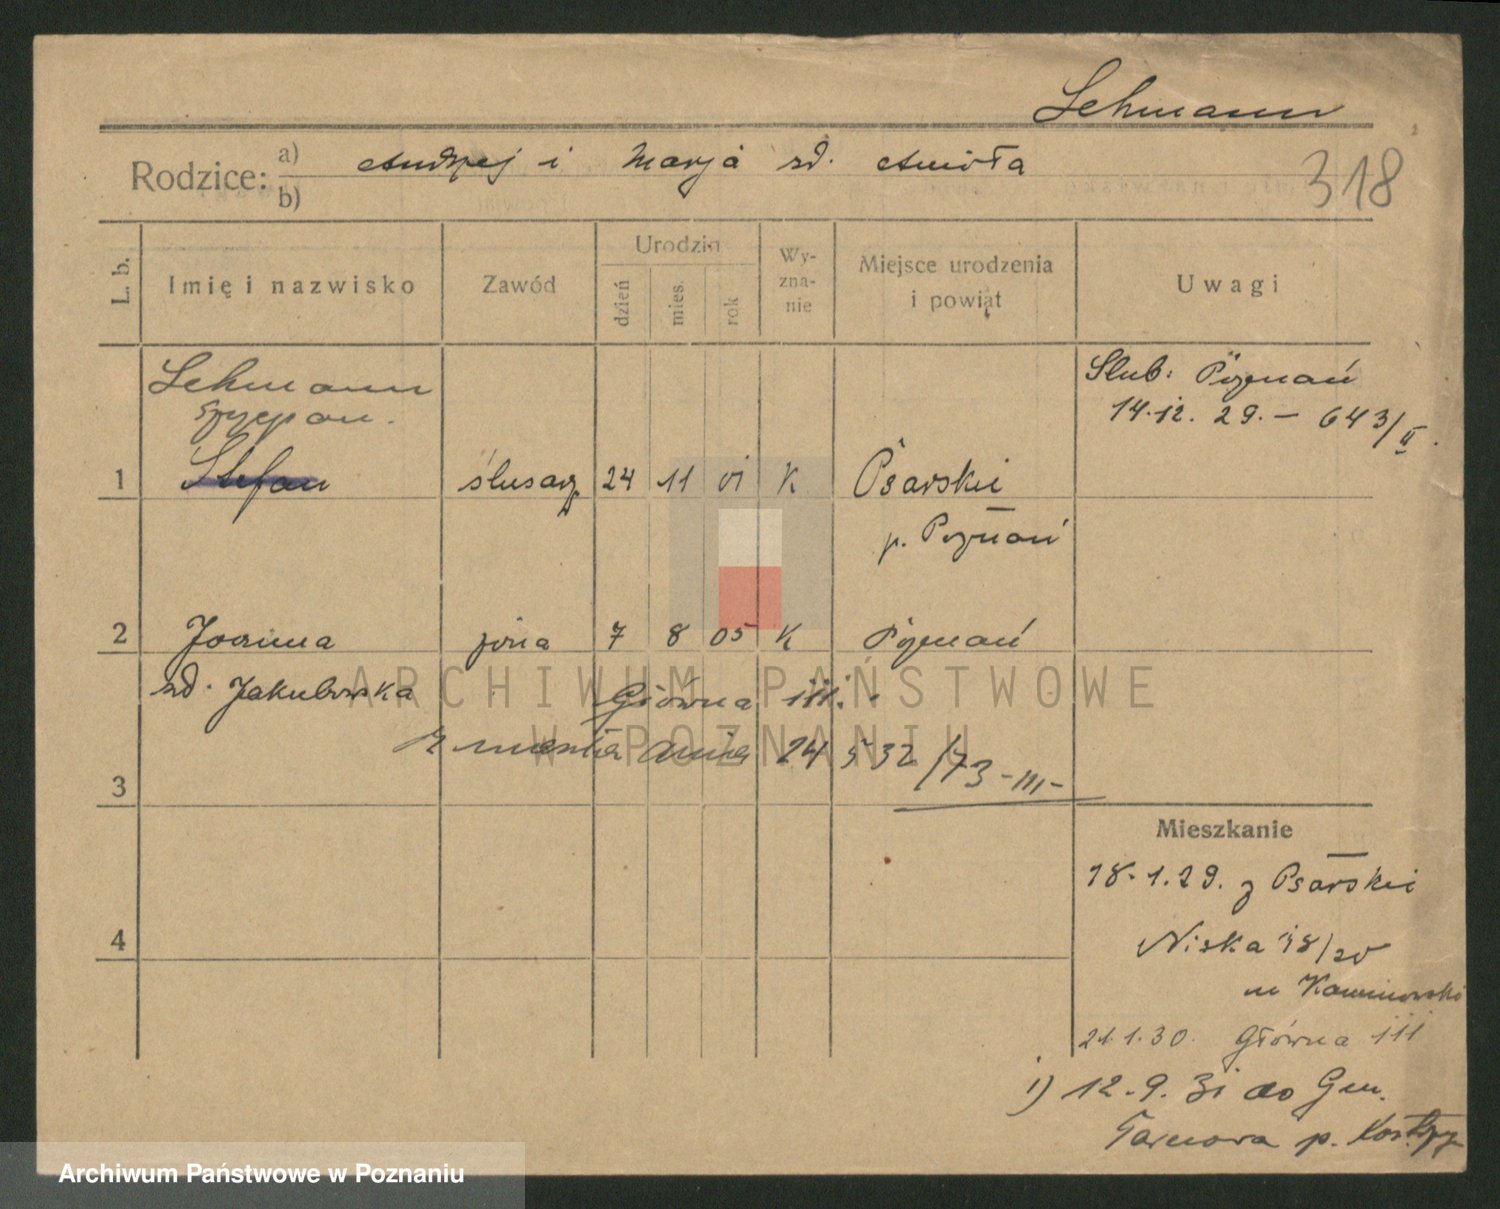 Lehmann
Rodzice: a) Andrzej i Marja zd. Anioła
b)
318
L. b.
Imię i nazwisko
Zawód
Urodzin
dzień
mies.
rok
Wy-
zna-
nie
Miejsce urodzenia
i powiat
Uwagi
Lehmann
Szczepan.
1 Stefan ślusarz 24 11 01 K Psarskie
p. Poznań
Slub: Poznań
14.12. 29. – 643/II.
2 Joanna żona 7 8 05 K Poznań
zd. Jakubowska
Główna 111.
24 5 32 /73-III-
3
4
Mieszkanie
18.1.29. z Psarskie
Niska 18/20
21.1.30. Główna 111
1) 12.9.31 do Gm.
Tarnowa p.
ARCHIWUM PAŃSTWOWE
W POZNANIU
Archiwum Państwowe w Poznaniu